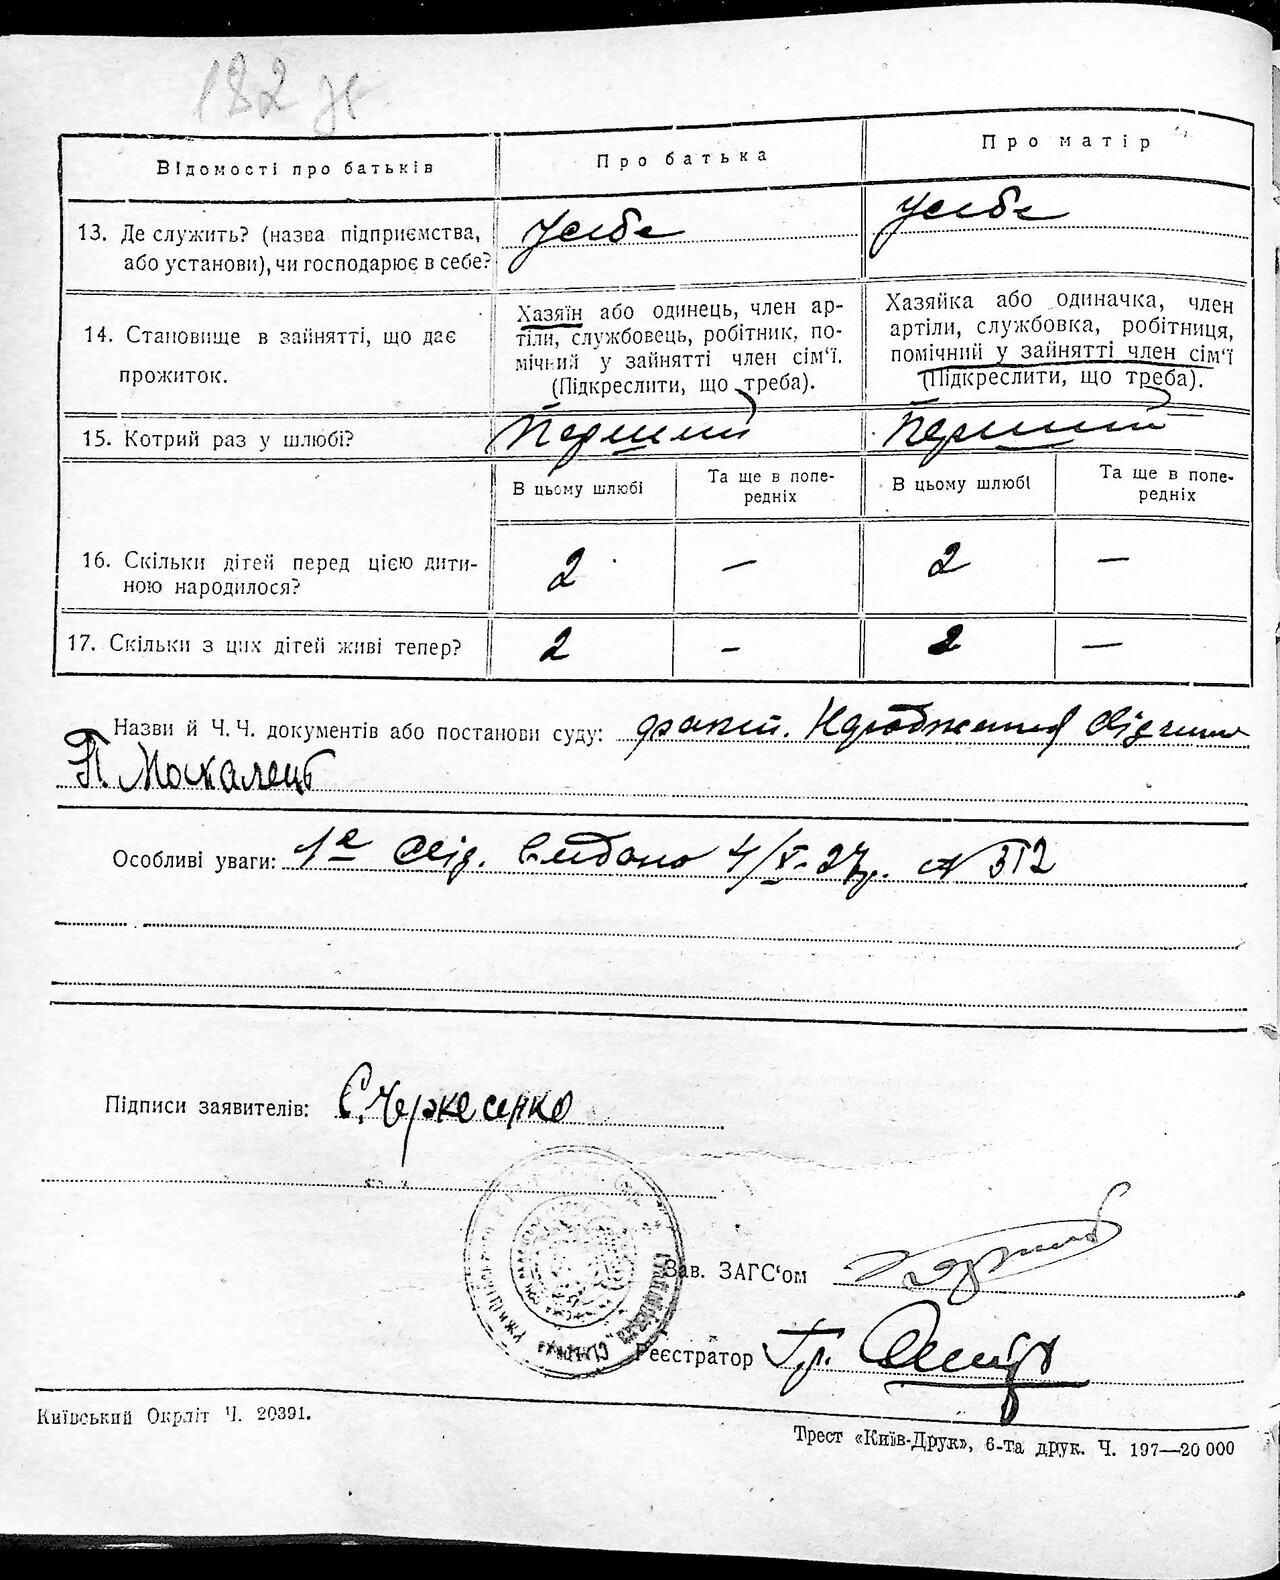 182 зв
Відомості про батьків
Про батька
Про матір
13. Де служить? (назва підприємства,
або установи), чи господарює в себе?
У себе
У себе
14. Становище в зайнятті, що дає
прожиток.
Хазяїн або одинець, член ар-
тіли, службовець, робітник, по-
мічний у зайнятті член сім'ї.
(Підкреслити, що треба).
Хазяйка або одиначка, член
артіли, службовка, робітниця,
помічний у зайнятті член сім'ї
(Підкреслити, що треба).
15. Котрий раз у шлюбі?
Перший
Перший
В цьому шлюбі
Та ще в попе-
редніх
В цьому шлюбі
Та ще в попе-
редніх
16. Скільки дітей перед цією дити-
ною народилося?
2
—
2
—
17. Скільки з цих дітей живі тепер?
2
-
2
—
Назви й Ч. Ч. документів або постанови суду: факт. Народження свідчив
П. Москалець
Особливі уваги: 1е свід. видано 4/V-27р. N 312
Підписи заявителів: Є. Черкесенко
Зав. ЗАГС'ом
Реєстратор Гр.
Київський Окрліт Ч. 20391.
Трест «Київ-Друк», 6-та друк. Ч. 197—20 000